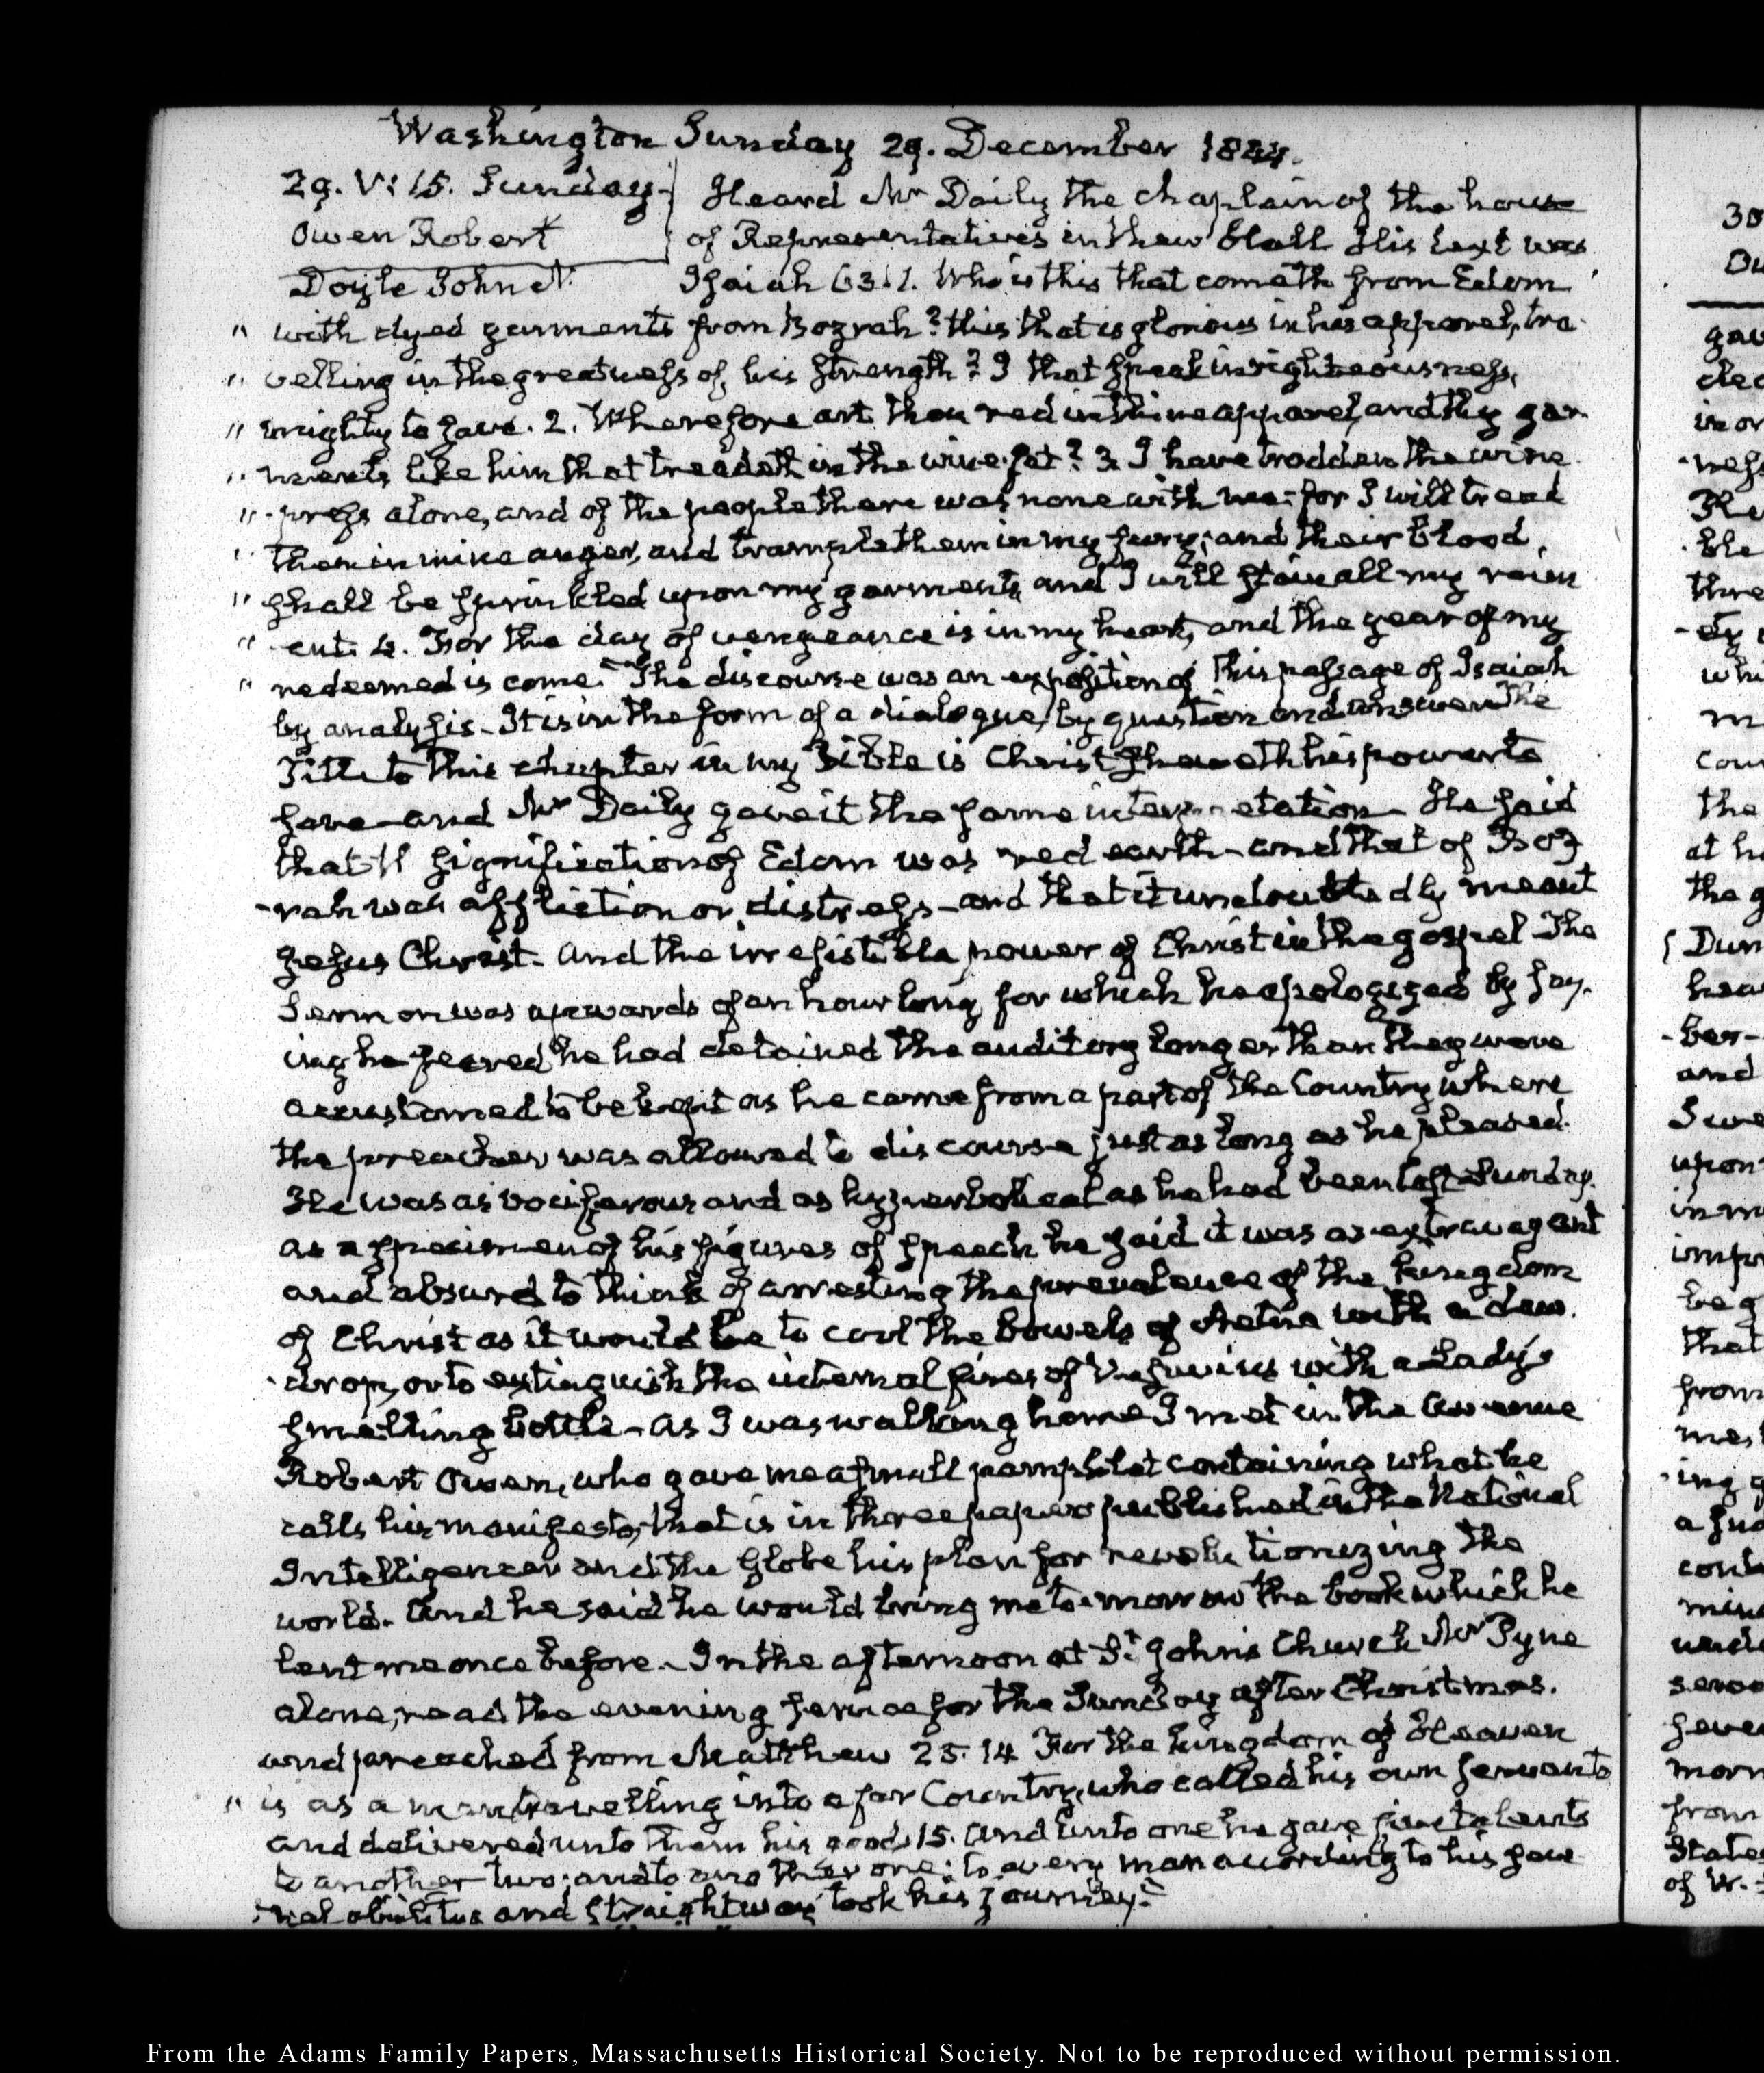 Washington Sunday 29. December 1844.
29. V: 15. Sunday. Heard Mr Daily the chaplain of the house
Owen Robert of Representatives in their Hall His text was
Doyle John T. Isaiah 63.1. Who is this that cometh from Edom
" with dyed garments from Bozrah? this that is glorious in his apparel, tra-
" velling in the greatness of his strength? I that speak in righteousness,
" mighty to save. 2. Wherefore art thou red in thine apparel, and thy gar
" ments like him that treadeth in the wine fat? 3. I have trodden the wine
" -press alone, and of the people there was none with me: for I will tread
' them in mine anger, and trample them in my fury; and their blood
" shall be sprinkled upon my garments, and I will stain all my raim
" -ent. 4. For the day of vengeance is in my heart, and the year of my
" redeemed is come." The discourse was an exposition of this passage of Isaiah
by analysis. It is in the form of a dialogue, by question and answer. The
Title to this chapter in my Bible is Christ sheweth his power to
save—and Mr Daily gave it the same interpretation—He said
that signification of Edom was red earth—and that of Boz
-rah was affliction or distress—and that it undoubtedly meant
Jesus Christ. And the irresistible power of Christ in the gospel The
Sermon was upwards of an hour long, for which he apologized by say-
ing he feared he had detained the auditory longer than they were
accustomed to be kept as he came from a part of the Country where
the preacher was allowed to discourse just as long as he pleased.
He was as vociferous and as hyperbolical as he had been last Sunday.
as a specimen of his figures of speech he said it was as extravagant
and absurd to think of arresting the prevalence of the kingdom
of Christ as it would be to cool the bowels of Aetna with a dew.
-drop, or to extinguish the internal fires of Vesuvius with a Lady's
smelling bottle—as I was walking home I met in the Avenue
Robert Owen, who gave me a small pamphlet containing what he
calls his manifesto, that is in three papers published in the National
Intelligencer and the Globe his plan for revolutionizing the
world. And he said he would bring me to-morrow the book which he
lent me once before.—In the afternoon at St. John's Church Mr Pyne
alone, read the evening service for the Sunday after Christmas.
and preached from Matthew 25.14 For the kingdom of Heaven
" is as a man travelling into a far Country, who called his own servants
and delivered unto them his goods 15. And unto one he gave five talents
to another two; and to another one; to every man according to his seve
-ral abilities and straightway took his journey."
30
gav
in or
-ness
ble
thre
who
m
the
at h
the g
and
upon
in m
impr
be g
that
from
mes
ing
seve
morn
from
State
of W.
From the Adams Family Papers, Massachusetts Historical Society. Not to be reproduced without permission.